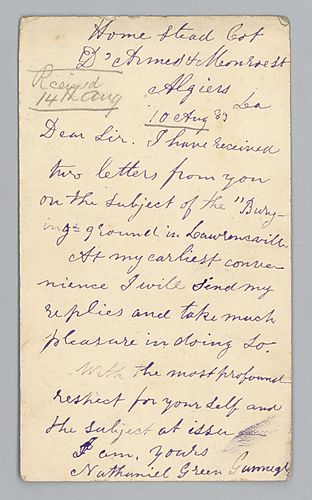 Home Stead Cot
D'Armas & Monroe St
Algiers
La
Received
14th Aug
10 Aug 83
Dear Sir. I have received
two letters from you
on the subject of the "Bury-
ing=ground in Lawrenceville
At my earliest conve-
nience I will send my
replies and take much
pleasure in doing so.
With the most profound
respect for your self and
the subject at issu
I am, yours
Nathaniel Green